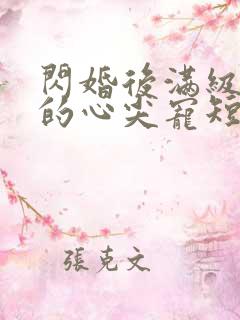 閃婚後滿級
的心尖寵短
張克文